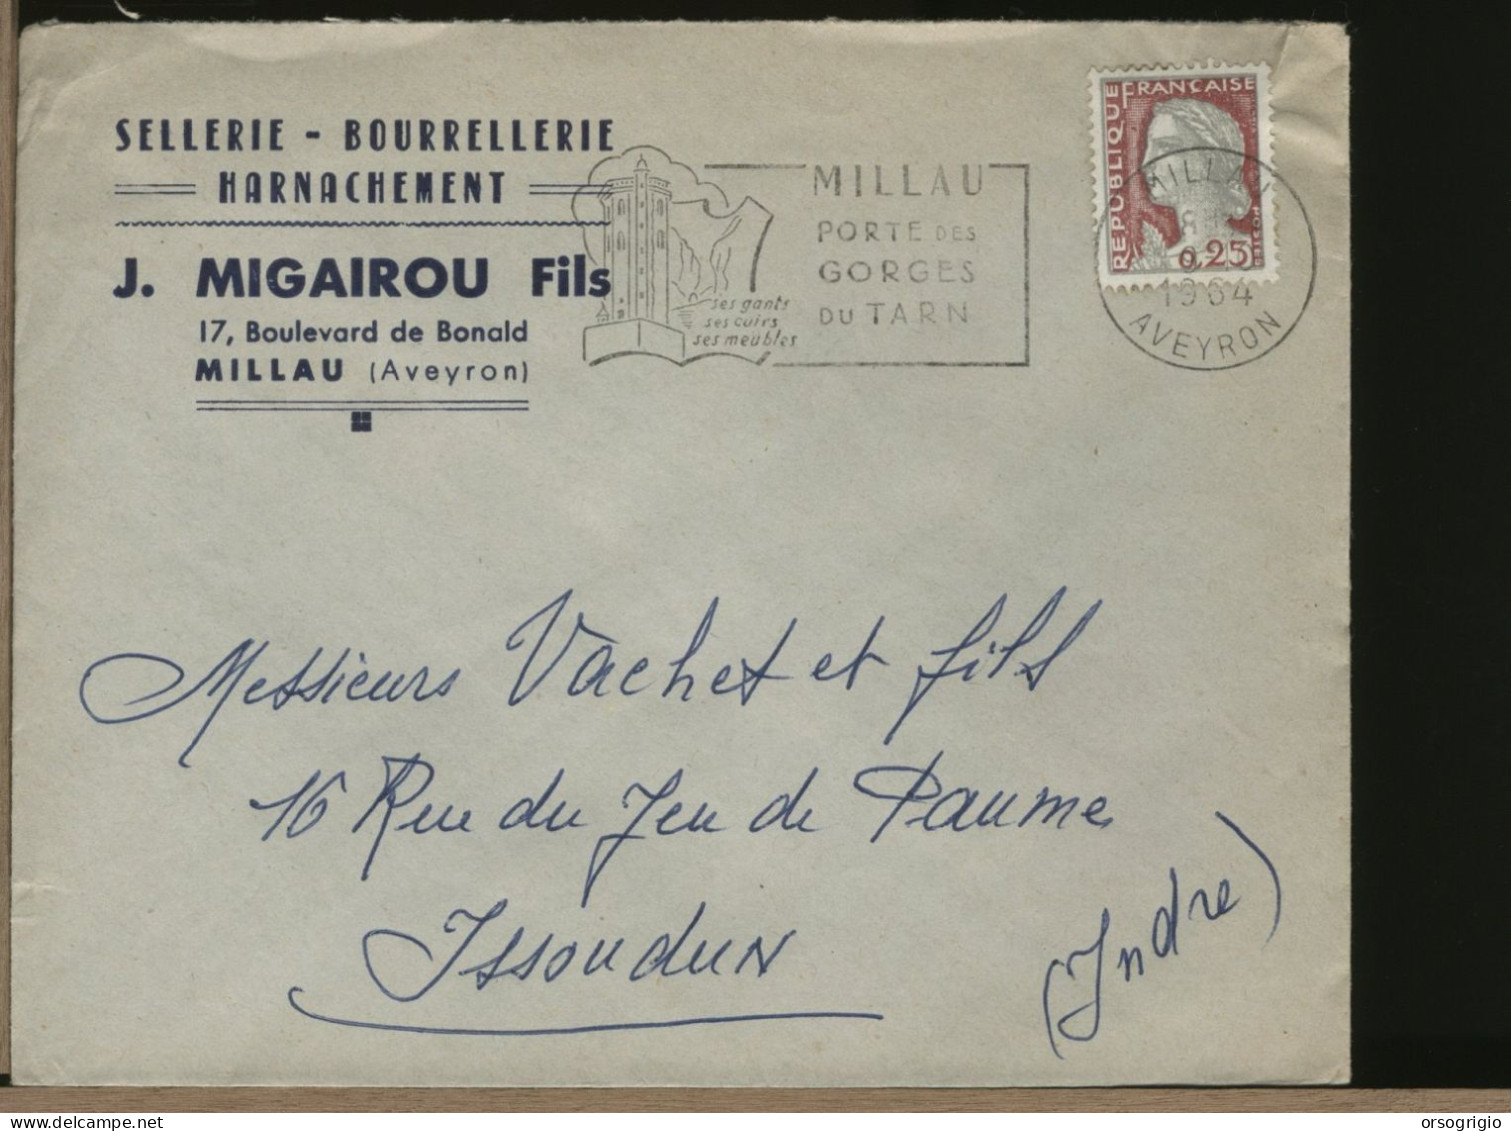 SELLERIE - BOURRELLERIE
HARNACHEMENT
J. MIGAIROU Fils
17, Boulevard de Bonald
MILLAU (Aveyron)
ses gants
ses cuirs
ses meubles
MILLAU
PORTE DES
GORGES
DU TARN
RÉPUBLIQUE FRANÇAISE
0,25
MILLAU
1964
AVEYRON
Messieurs Vachet et fils
16 Rue du Jeu de Paume
Issoudun
(Indre)
delcampe.net
orsogrigio